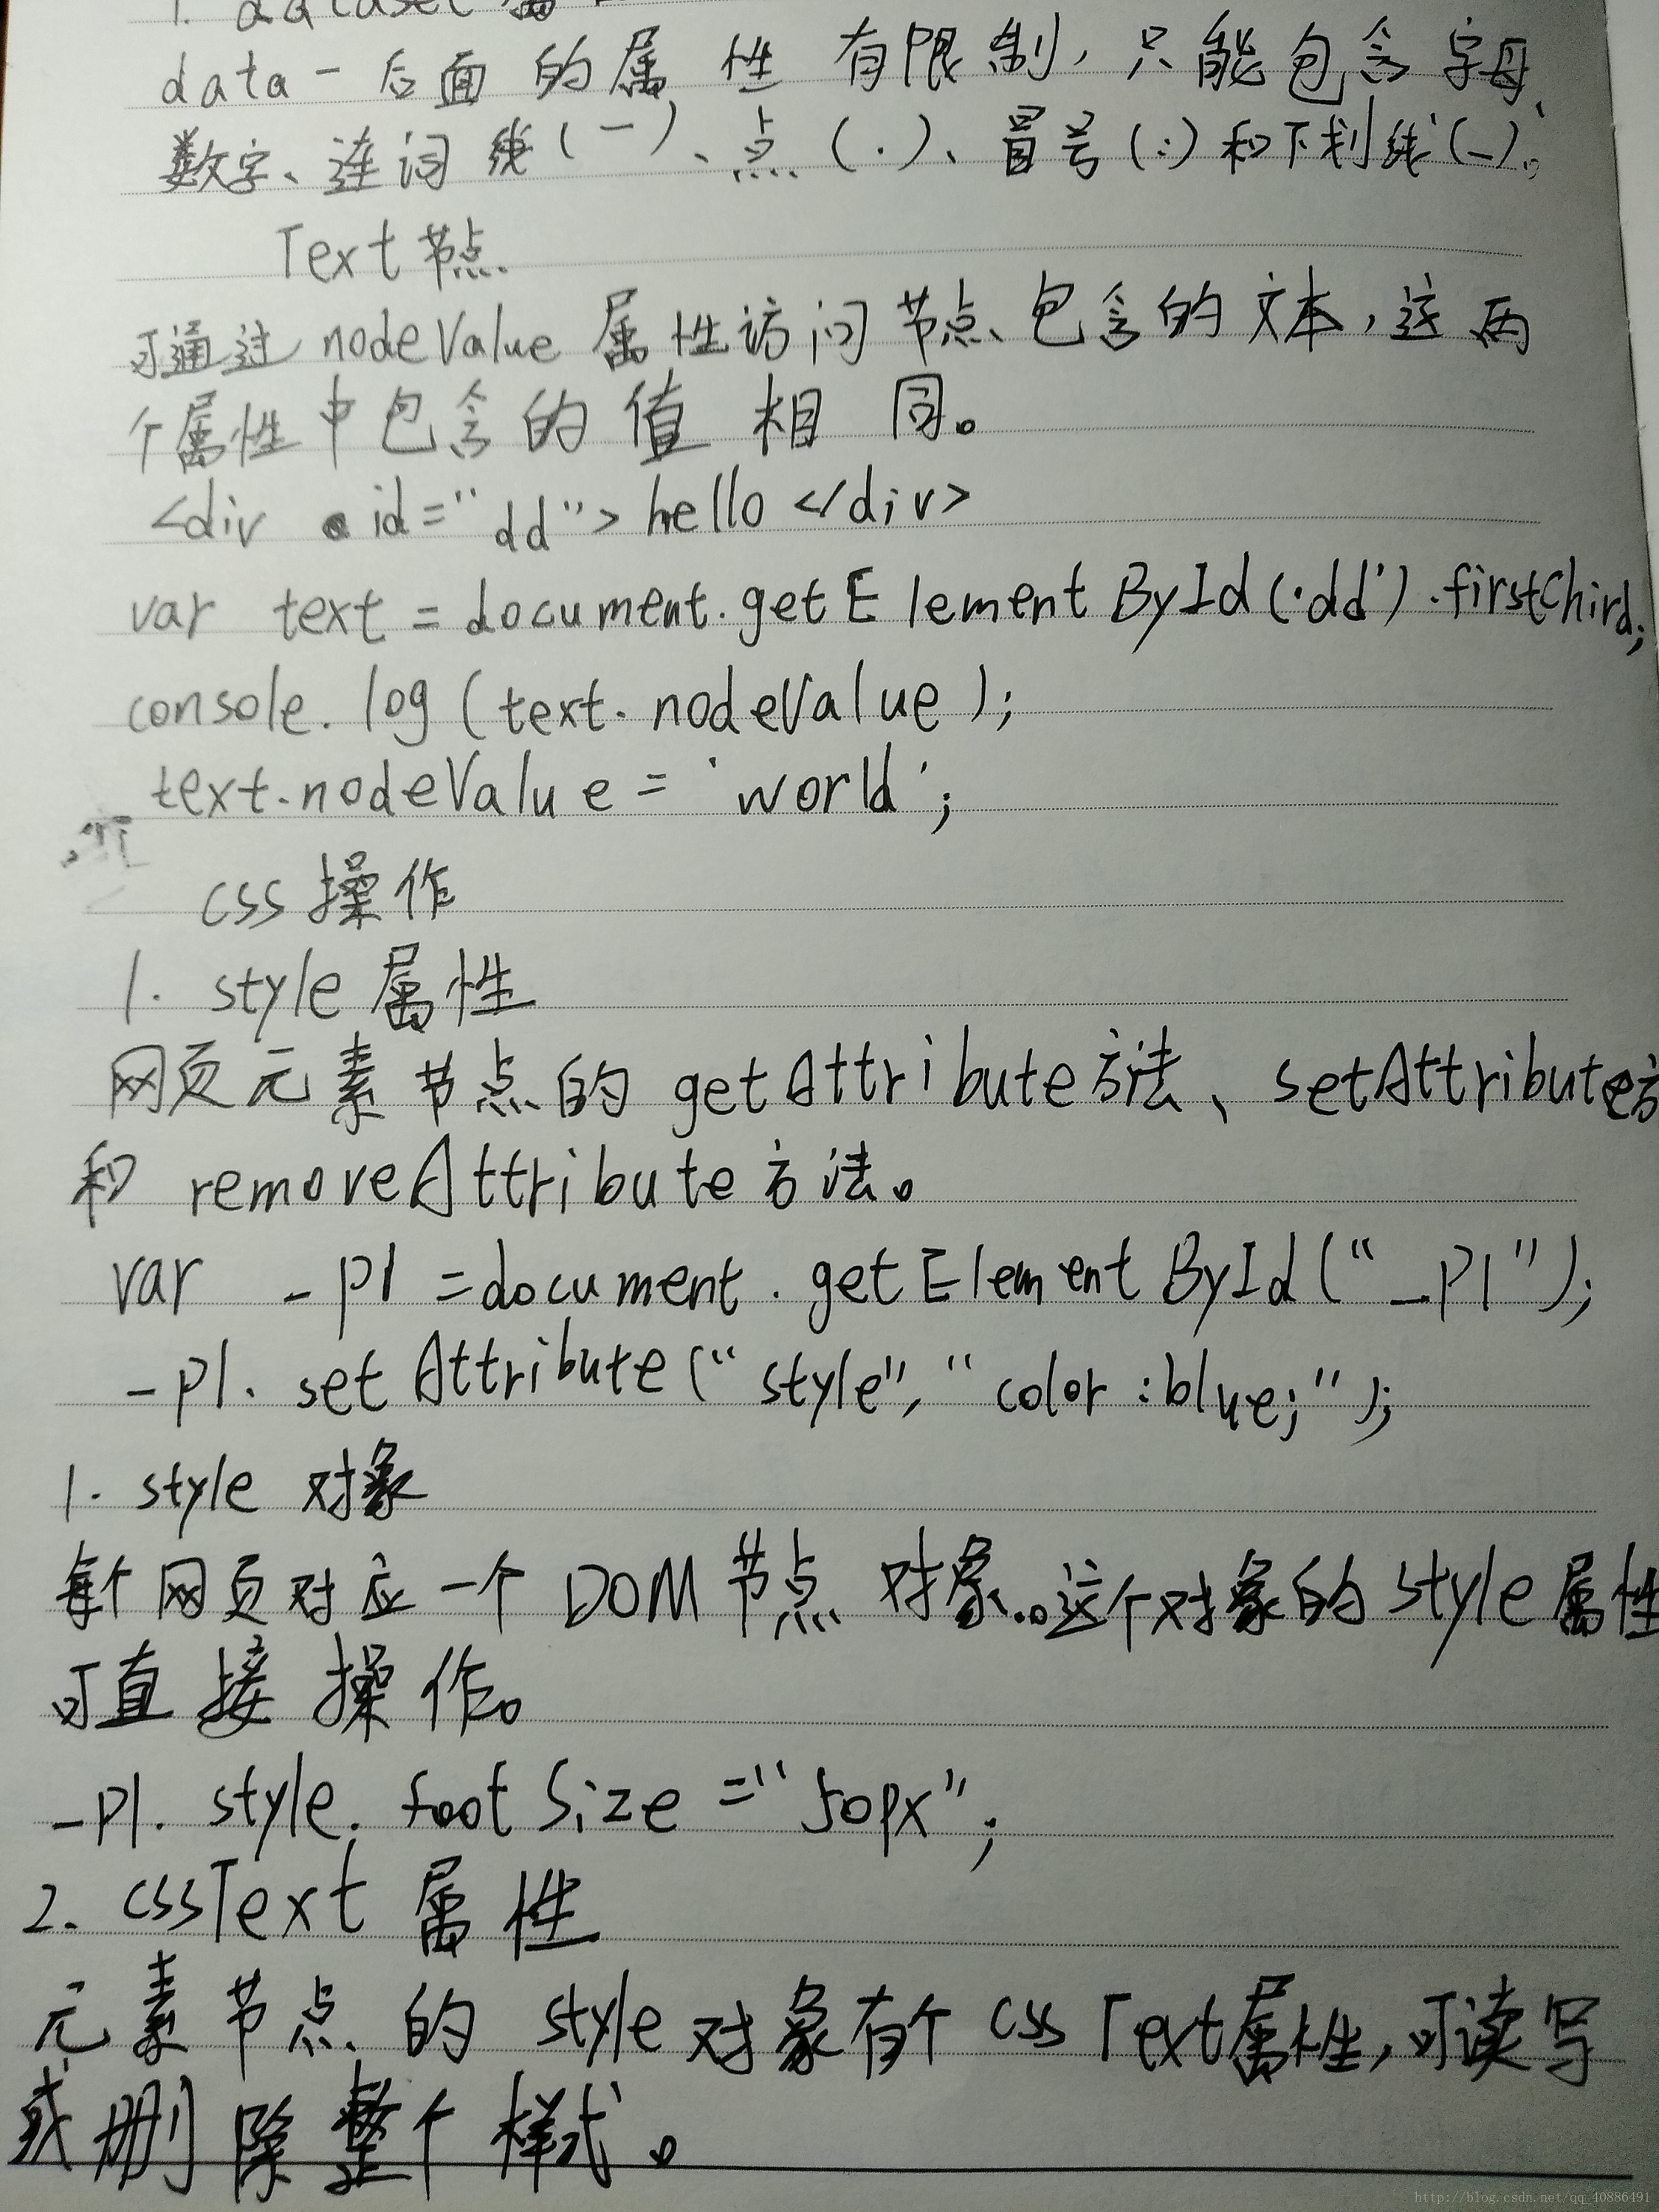 1. dataset属
data-后面的属性有限制,只能包含字母、
数字、连词线(-)、点(.)、冒号(:)和下划线(_)。
Text节点
可通过nodeValue属性访问节点包含的文本,这两
个属性中包含的值相同。
<div id="dd">hello</div>
var text = document.getElementById('dd').firstChird;
console.log(text.nodeValue);
text.nodeValue = 'world';
css操作
1. style属性
网页元素节点的getAttribute方法、setAttribute方
和removeAttribute方法。
var _p1 = document.getElementById("_p1");
_p1.setAttribute("style", "color:blue;");
1. style对象
每个网页对应一个DOM节点对象。这个对象的style属性
可直接操作。
_p1.style.footSize = "50px";
2. cssText属性
元素节点的style对象有个cssText属性,可读写
或删除整个样式。
http://blog.csdn.net/qq_40886491